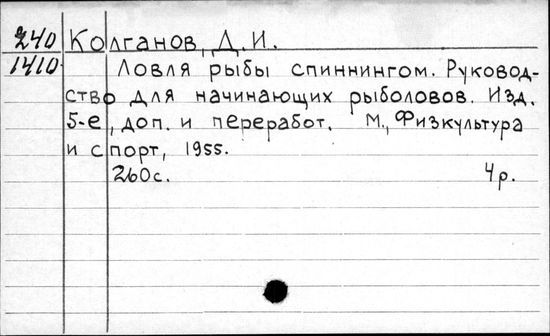 240 Колганов, Д. И.
1410 Ловля рыбы спиннингом. Руковод-
ство для начинающих рыболовов. Изд.
5-е, доп. и переработ. М., Физкультура
и спорт, 1955.
260с. 4р.